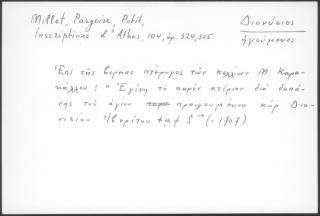 Millet, Pargoire, Petit,
Inscriptions d'Athos, 104, ἀρ. 324, 325
Διονύσιος
ἡγούμενος
Ἐπὶ τῆς βορείας πτέρυγος τῶν κελλίων Μ. Καρα-
κάλλου: "Ἐγένη τὸ παρὸν κτίριον διὰ δαπά-
νης τοῦ ἁγίου προηγουμένου κὺρ Διο-
νυσίου (= 1707).